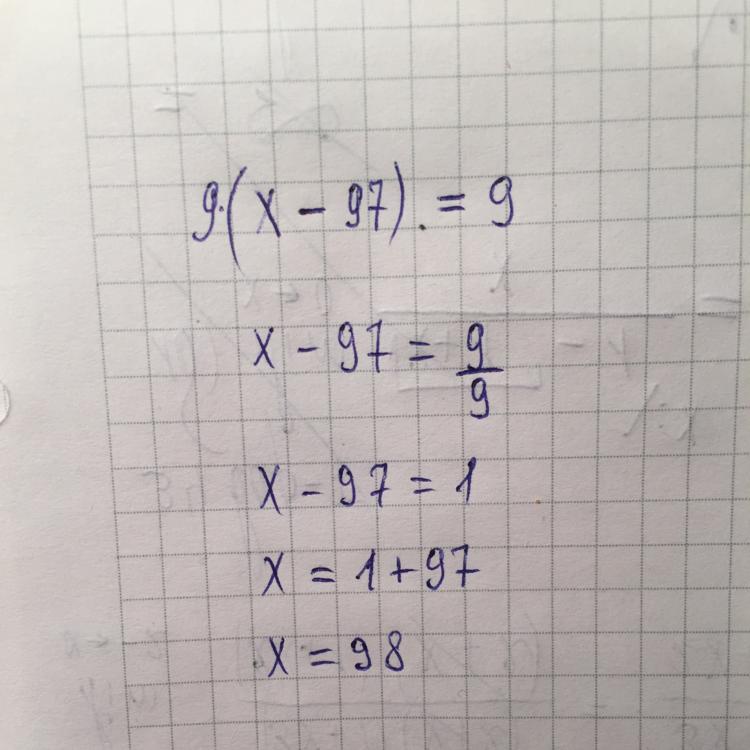 9·(x - 97) = 9
x - 97 = 9/9
x - 97 = 1
x = 1 + 97
x = 98